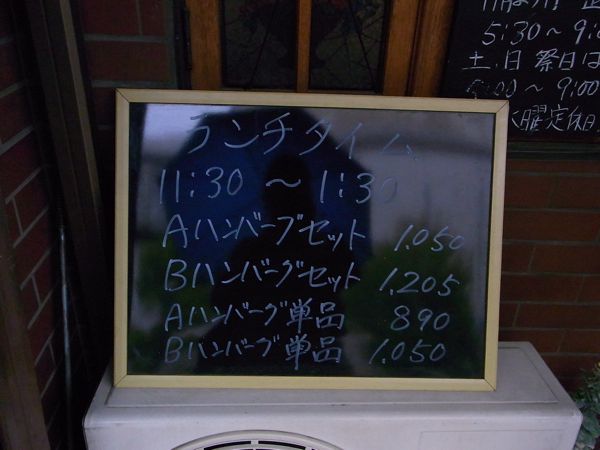 ランチタイム
11:30～1:30
Aハンバーグセット 1.050
Bハンバーグセット 1.205
Aハンバーグ単品 890
Bハンバーグ単品 1.050
5:30～9:0
土.日祭日は
00～9:00
曜定休日